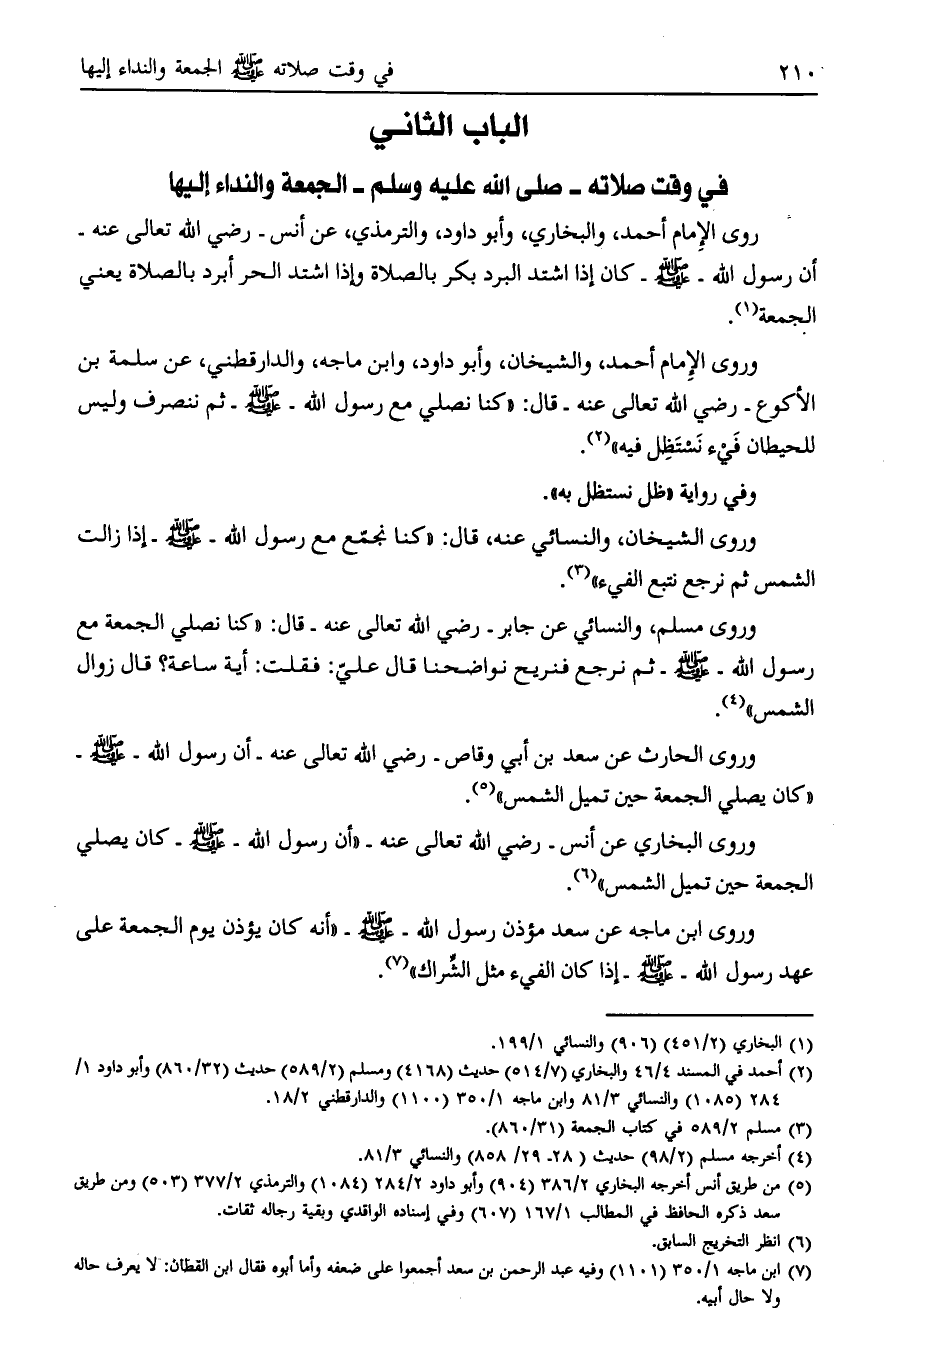 ٢١٠ في وقت صلاته ﷺ الجمعة والنداء إليها
الباب الثاني
في وقت صلاته - صلى الله عليه وسلم - الجمعة والنداء إليها
روى الإمام أحمد، والبخاري، وأبو داود، والترمذي، عن أنس - رضي الله تعالى عنه -
أن رسول الله - ﷺ - كان إذا اشتد البرد بكر بالصلاة وإذا اشتد الحر أبرد بالصلاة يعني
الجمعة(١).
وروى الإمام أحمد، والشيخان، وأبو داود، وابن ماجه، والدارقطني، عن سلمة بن
الأكوع - رضي الله تعالى عنه - قال: «كنا نصلي مع رسول الله - ﷺ - ثم ننصرف وليس
للحيطان فَيْء نَسْتَظِل فيه»(٢).
وفي رواية «ظل نستظل به».
وروى الشيخان، والنسائي عنه، قال: «كنا نجمّع مع رسول الله - ﷺ - إذا زالت
الشمس ثم نرجع نتبع الفيء»(٣).
وروى مسلم، والنسائي عن جابر - رضي الله تعالى عنه - قال: «كنا نصلي الجمعة مع
رسول الله - ﷺ - ثم نرجع فنريح نواضحنا قال عليّ: فقلت: أية ساعة؟ قال زوال
الشمس»(٤).
وروى الحارث عن سعد بن أبي وقاص - رضي الله تعالى عنه - أن رسول الله - ﷺ -
«كان يصلي الجمعة حين تميل الشمس»(٥).
وروى البخاري عن أنس - رضي الله تعالى عنه - «أن رسول الله - ﷺ - كان يصلي
الجمعة حين تميل الشمس»(٦).
وروى ابن ماجه عن سعد مؤذن رسول الله - ﷺ - «أنه كان يؤذن يوم الجمعة على
عهد رسول الله - ﷺ - إذا كان الفيء مثل الشِّراك»(٧).
(١) البخاري (٤٥١/٢) (٩٠٦) والنسائي ١٩٩/١.
(٢) أحمد في المسند ٤٦/٤ والبخاري (٥١٤/٧) حديث (٤١٦٨) ومسلم (٥٨٩/٢) حديث (٨٦٠/٣٢) وأبو داود ١/
٢٨٤ (١٠٨٥) والنسائي ٨١/٣ وابن ماجه ٣٥٠/١ (١١٠٠) والدارقطني ١٨/٢.
(٣) مسلم ٥٨٩/٢ في كتاب الجمعة (٨٦٠/٣١).
(٤) أخرجه مسلم (٩٨/٢) حديث ( ٢٨- ٢٩/ ٨٥٨) والنسائي ٨١/٣.
(٥) من طريق أنس أخرجه البخاري ٣٨٦/٢ (٩٠٤) وأبو داود ٢٨٤/٢ (١٠٨٤) والترمذي ٣٧٧/٢ (٥٠٣) ومن طريق
سعد ذكره الحافظ في المطالب ١٦٧/١ (٦٠٧) وفي إسناده الواقدي وبقية رجاله ثقات.
(٦) انظر التخريج السابق.
(٧) ابن ماجه ٣٥٠/١ (١١٠١) وفيه عبد الرحمن بن سعد أجمعوا على ضعفه وأما أبوه فقال ابن القطان: لا يعرف حاله
ولا حال أبيه.